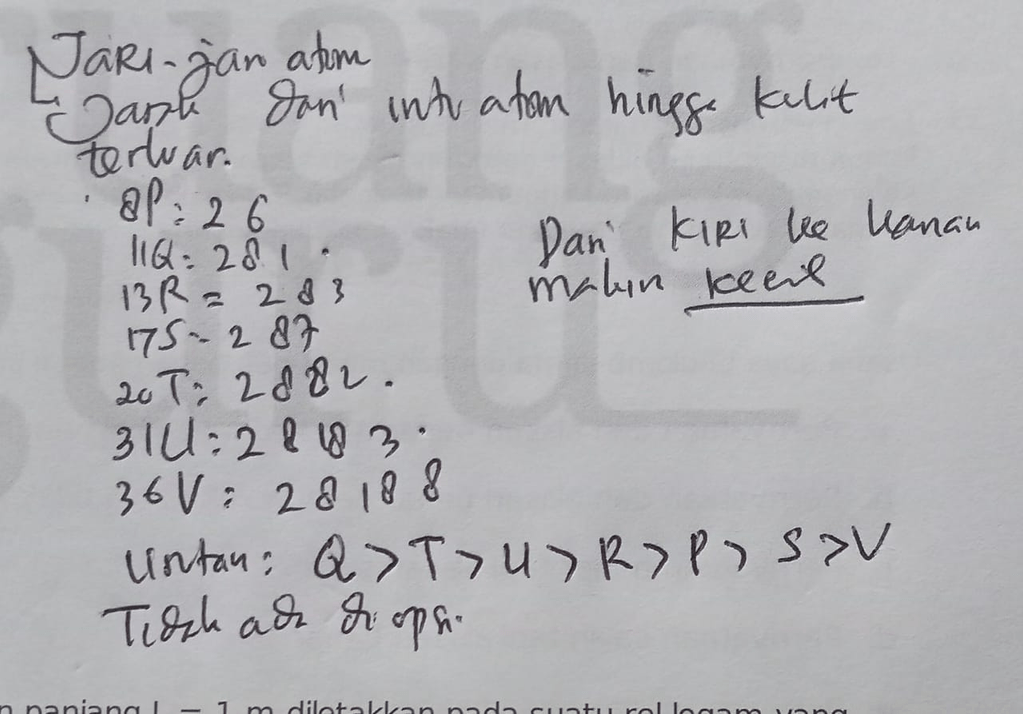 JARI-jari atom
Jarak dari inti atom hingga kulit
terluar.
8P: 2 6
11Q: 2 8 1
13R = 2 8 3
17S - 2 8 7
20T: 2 8 8 2.
31U: 2 8 18 3
36V: 2 8 18 8
Dari KIRI ke kanan
makin kecil
Urutan: Q > T > U > R > P > S > V
Tidak ada di opsi.
ruang
guru
n panjang L = 1 m diletakkan pada suatu rel logam yang